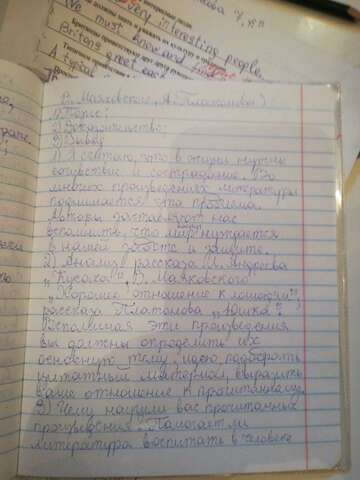 ова 7, кл
very interesting people.
We must know and find
Britons greet each
A typical
В. Маяковского, А. Платонова)
1) Тезис:
2) Доказательство:
3) Вывод
1) Я считаю, что в жизни нужны
сочувствие и сострадание. Во
многих произведениях литературы
поднимается эта проблема.
Авторы заставляют нас
вспомнить, что мир нуждается
в нашей заботе и защите.
2) Анализ рассказа Л. Андреева
„Кусака", В. Маяковского
„Хорошее отношение к лошадям",
рассказа Платонова „Юшка".
Вспоминая эти произведения
вы должны определить их
основную тему, идею, подобрать
цитатный материал, выразить
ваше отношение к прочитанному.
3) Чему научили вас прочитанные
произведения. Помогает ли
литература воспитать в человеке